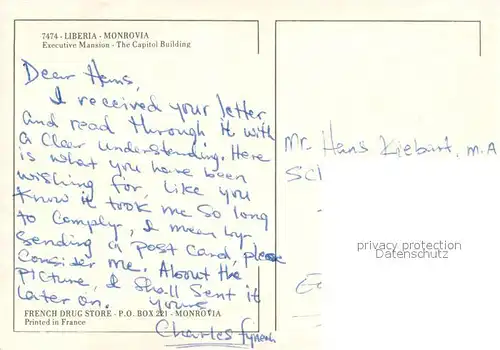 7474 - LIBERIA - MONROVIA
Executive Mansion - The Capitol Building
Dear Hans,
I received your letter
and read through it with
a Clear understanding. Here
is what you have been
wishing for, like you
know it took me so long
to Comply, I mean by
Sending a post Card, please
Consider me. About the
picture, I shall Sent it
later on. Yours
Charles
FRENCH DRUG STORE - P.O. BOX 221 - MONROVIA
Printed in France
Mr. Hans Kiebart, M.A
privacy protection
Datenschutz